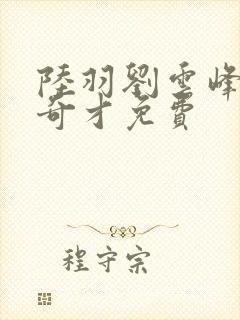 陸羽劉雲峰
奇才免費
程守宗